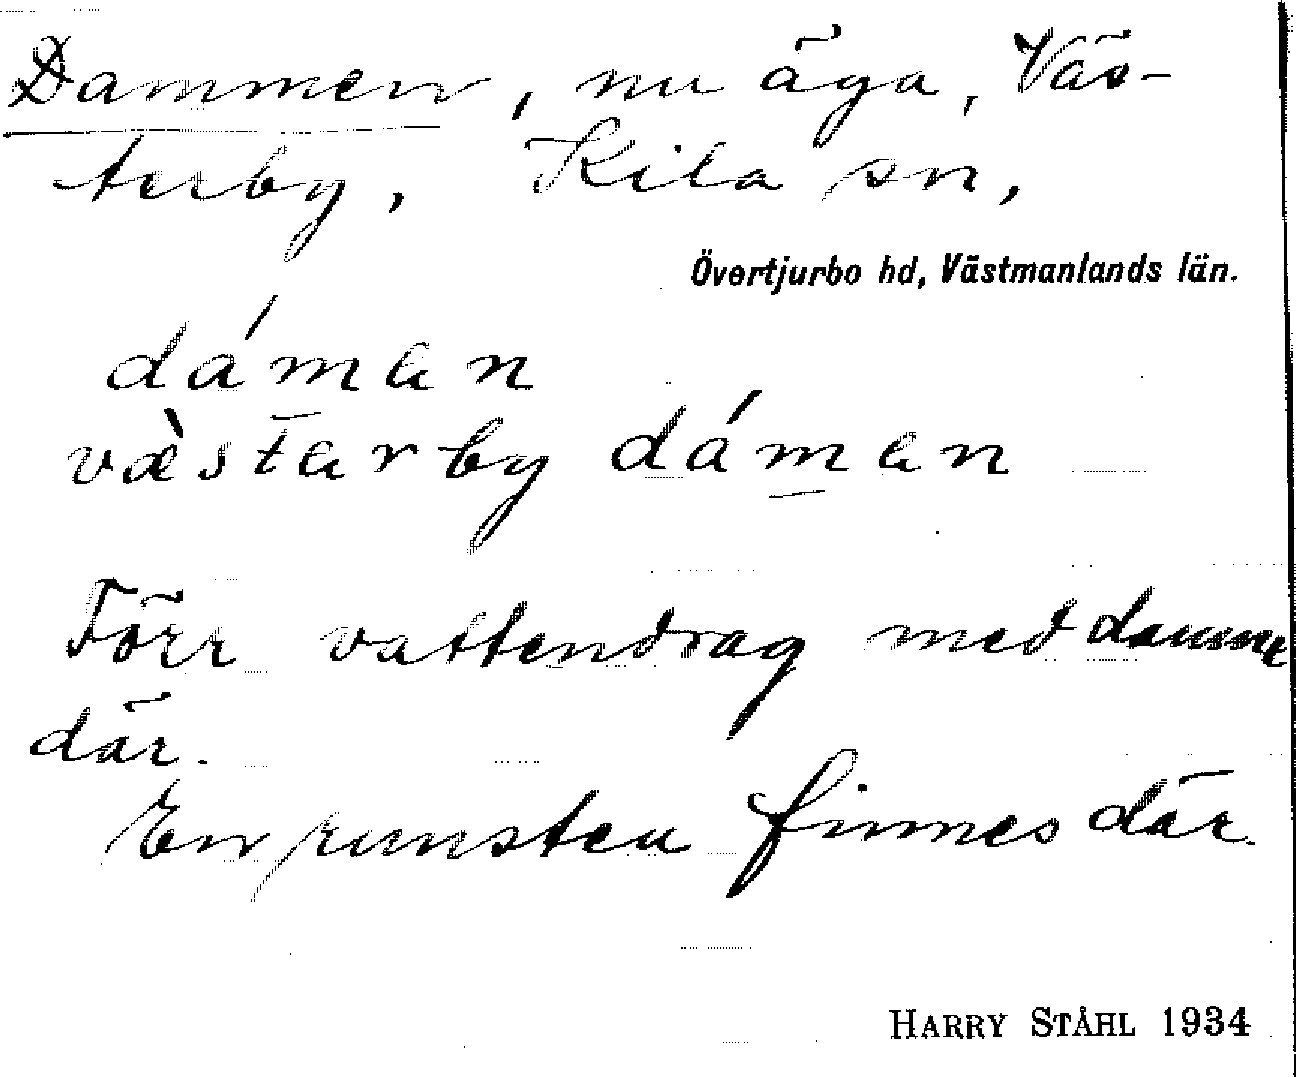 Dammen, nu äga, Väs-
terby, Kila sn,
Övertjurbo hd, Västmanlands län.
dáman
væ̀starby dáman
Förr vattendrag med damm
där.
En runsten finnes där.
HARRY STÅHL 1934